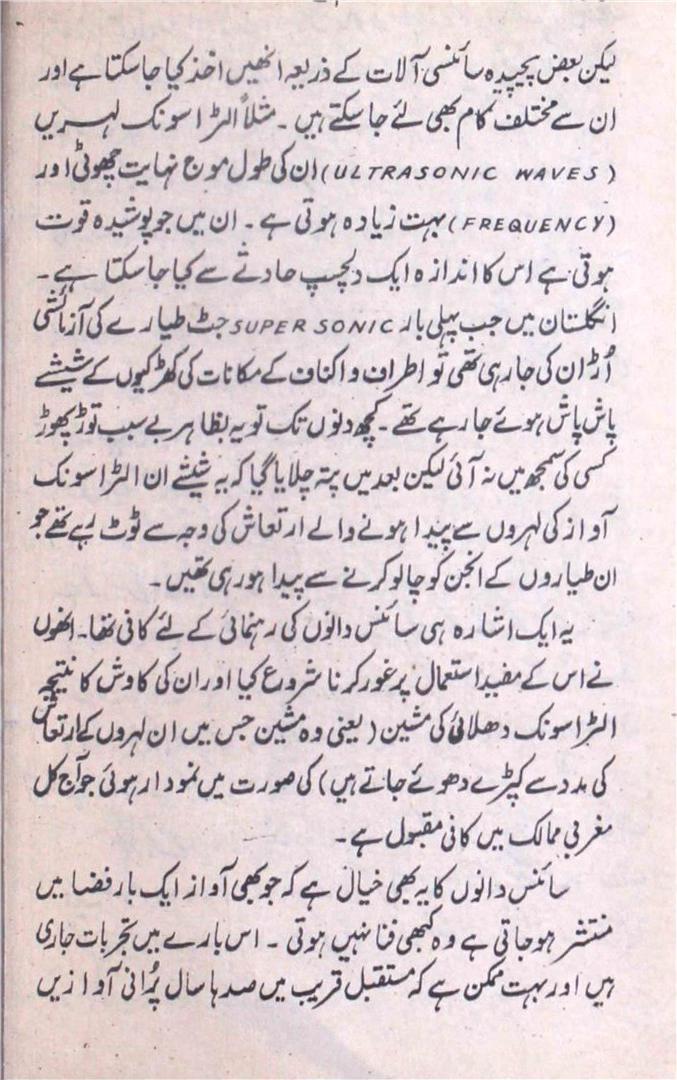 لیکن بعض پیچیدہ سائنسی آلات کے ذریعہ انھیں اخذ کیا جا سکتا ہے اور
ان سے مختلف کام بھی لئے جا سکتے ہیں ۔ مثلاً الٹرا سونک لہریں
(ULTRASONIC WAVES) ان کی طول موج نہایت چھوٹی اور
(FREQUENCY) بہت زیادہ ہوتی ہے ۔ ان میں جو پوشیدہ قوت
ہوتی ہے اس کا اندازہ ایک دلچسپ حادثے سے کیا جا سکتا ہے ۔
انگلستان میں جب پہلی بار SUPER SONIC جٹ طیارے کی آزمائشی
اُڑان کی جا رہی تھی تو اطراف و اکناف کے مکانات کی کھڑکیوں کے شیشے
پاش پاش ہوئے جا رہے تھے ۔ کچھ دنوں تک تو یہ بظاہر بے سبب توڑ پھوڑ
کسی کی سمجھ میں نہ آئی لیکن بعد میں پتہ چلایا گیا کہ یہ شیشے ان الٹرا سونک
آواز کی لہروں سے پیدا ہونے والے ارتعاش کی وجہ سے ٹوٹ رہے تھے جو
ان طیاروں کے انجن کو چالو کرنے سے پیدا ہو رہی تھیں ۔
یہ ایک اشارہ ہی سائنس دانوں کی رہنمائی کے لئے کافی تھا۔ انھوں
نے اس کے مفید استعمال پر غور کرنا شروع کیا اور ان کی کاوش کا نتیجہ
الٹرا سونک دھلائی کی مشین (یعنی وہ مشین جس میں ان لہروں کے ارتعاش
کی مدد سے کپڑے دھوئے جاتے ہیں) کی صورت میں نمودار ہوئی جو آج کل
مغربی ممالک میں کافی مقبول ہے ۔
سائنس دانوں کا یہ بھی خیال ہے کہ جو بھی آواز ایک بار فضا میں
منتشر ہو جاتی ہے وہ کبھی فنا نہیں ہوتی ۔ اس بارے میں تجربات جاری
ہیں اور بہت ممکن ہے کہ مستقبل قریب میں صدہا سال پُرانی آوازیں